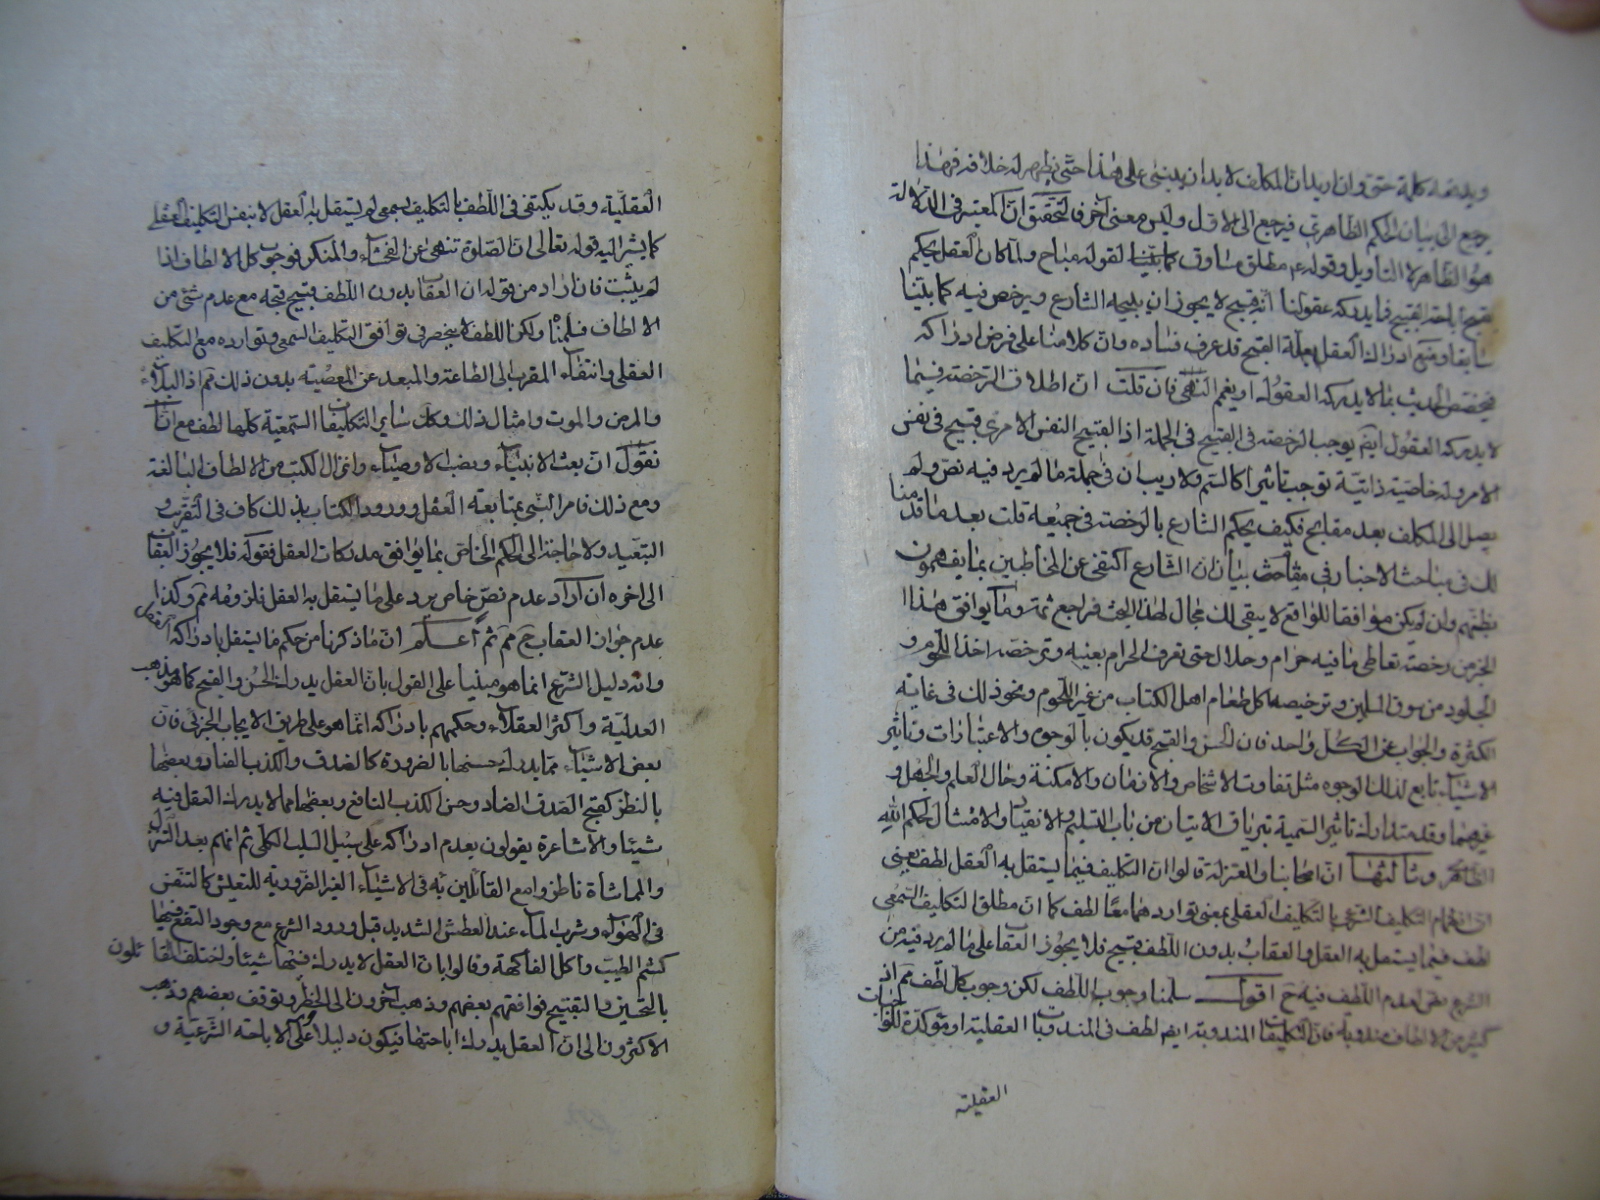 ويدفعه كلمة حتى وان اريد ان المكلف لا بد ان يبنى على هذا حتى يظهر له خلافه فهذا
يرجع الى بيان الحكم الظاهري فيرجع الى الاول وليس معنى آخر فالتحقيق ان المعتبر في الدلالة
هو الظاهر لا التأويل وقوله ع مطلق مساوق كما بيّنا لقوله مباح ولما كان العقل يحكم
بقبح اباحة القبيح فما يدركه عقولنا انه قبيح لا يجوز ان يبيحه الشارع ويرخص فيه كما بيّنا
سابقا ومنع ادراك العقل لعلة القبح قد عرف فساده وان كلامنا على فرض ادراكه
فيخصص الحديث بما لا يدركه العقول او يعمم النهى فان قلت ان اطلاق الرخصة فيما
لا يدركه العقول ايضم يوجب الرخصة في القبيح في الجملة اذ القبيح النفس الامرى قبيح في نفس
الامر وله خاصية ذاتية توجب تاثيرا كالسم ولا ريب ان في جملة ما لم يرد فيه نص ولم
يصل الى المكلف بعد مقابح فكيف يحكم الشارع بالرخصة في جميعه قلت بعد ما قدمنا
لك في مباحث الاخبار في مباحث بيان ان الشارع اكتفى عن المخاطبين بما يفهمون
بظنهم وان لم يكن موافقا للواقع لا يبقى لك مجال لهذا البحث فراجع ثمة ومما يوافق هذا
الخبر من رخصة تعاطى ما فيه حرام وحلال حتى تعرف الحرام بعينه وترخصه اخذ اللحوم و
الجلود من سوق المسلمين وترخيصه اكل طعام اهل الكتاب من غير اللحوم ونحو ذلك في غاية
الكثرة والجواب عن الكل واحد فان الحسن والقبح قد يكون بالوجوه والاعتبارات وتاثير
الاشياء تابع لذلك الوجوه مثل تفاوت الاشخاص والازمان والامكنة وحال العلم والجهل و
غيرهما وقد يتدارك تاثير السمية بترياق الاتيان من باب التسليم والانقياد والامتثال لحكم الله
الظاهر وثالثها ان اصحابنا والمعتزلة قالوا ان التكليف فيما يستقل به العقل لطف يعنى
ان انضمام التكليف الشرعى بالتكليف العقلى بمعنى تواردهما معا لطف كما ان مطلق التكليف السمعى
لطف فيما يستقل به العقل والعقاب بدون اللطف قبيح فلا يجوز العقاب على ما لم يرد فيه من
الشرع نص لعدم اللطف فيه ح اقول سلمنا وجوب اللطف لكن وجوب كل لطف مم اذ
كثير من الالطاف مندوبة فان التكليفات المندوبة ايضم لطف في المندوبات العقلية او مؤكدة للواجبات
العقلية
العقلية وقد يكتفى في اللطف بالتكليف السمعى لم يستقل به العقل لا بنفس التكليف العقلى
كما يشير اليه قوله تعالى ان الصلوة تنهى عن الفحشاء والمنكر فوجوب كل الالطاف اذا
لم يثبت فان اراد من قوله ان العقاب بدون اللطف قبيح قبحه مع عدم شئ من
الالطاف فسلمناه ولكن اللطف لا ينحصر في توافق التكليف السمعى وتوارده مع التكليف
العقلى وانتفاء المقرب الى الطاعة والمبعد عن المعصية بدون ذلك مم اذ البلاء
والمرض والموت وامثال ذلك وكك ساير التكليفات السمعية كلها لطف مع انا
نقول ان بعث الانبياء ونصب الاوصياء وانزال الكتب من الالطاف البالغة
ومع ذلك فامر النبي بمتابعة العقل وورود الكتاب بذلك كاف في التقريب و
التبعيد ولا حاجة الى الحكم الخاص بما يوافق مدركات العقل فقوله فلا يجوز العقاب
الى اخره ان اراد عدم نص خاص يرد على ما يستقل به العقل فلزومه مم وكذا
عدم جواز العقاب ح مم ثم اعلم ان ما ذكرنا من حكم ما يستقل بادراكه العقل
وانه دليل الشرع انما هو مبنيا على القول بان العقل يدرك الحسن والقبح كما هو مذهب
العدلية واكثر العقلاء وحكمهم بادراكه انما هو على طريق الايجاب الجزئى فان
بعض الاشياء مما يدرك حسنها بالضرورة كالصدق والكذب الضار وبعضها
بالنظر كقبح الصدق الضار وحسن الكذب النافع وبعضها مما لا يدرك العقل فيه
شيئا والاشاعرة يقولون بعدم ادراكه على سبيل السلب الكلى ثم انهم بعد التنزل
والمماشاة ناظروا مع القائلين به في الاشياء الغير الضرورية للتعيش كالتنفس
في الهواء وشرب الماء عند العطش الشديد قبل ورود الشرع مع وجود النفع فيها
كشم الطيب واكل الفاكهة وقالوا بان العقل لا يدرك فيها شيئا واختلف القائلون
بالتحسين والتقبيح فوافقهم بعضهم وذهب آخرون الى الحظر وتوقف بعضهم وذهب
الاكثرون الى ان العقل يدرك اباحتها فيكون دليلا على الاباحة الشرعية و